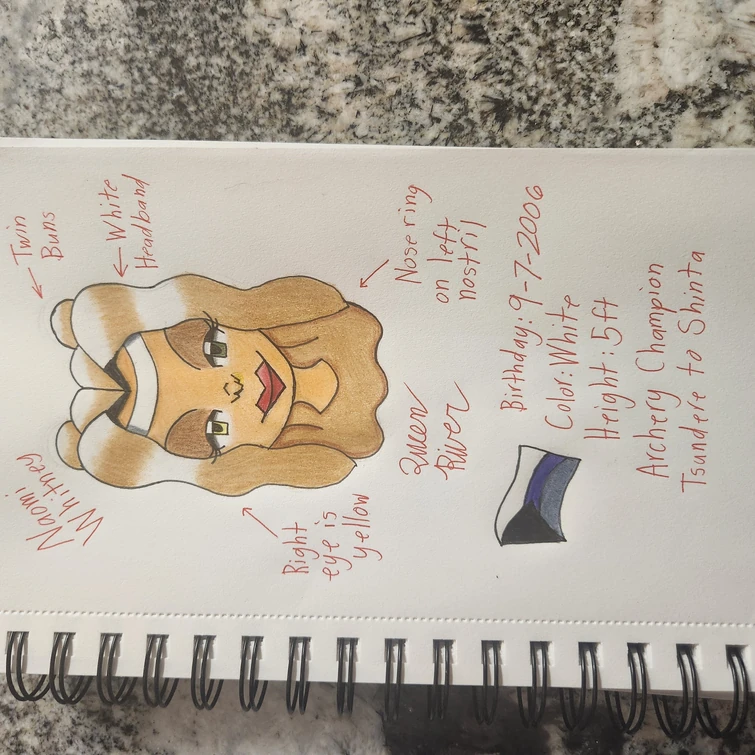 Naomi
Whitney
← Twin
Buns
← White
Headband
Right
eye is
yellow
Nose ring
on left
nostril
Queen
River
Birthday: 9-7-2006
Color: White
Height: 5ft
Archery Champion
Tsundere to Shinta